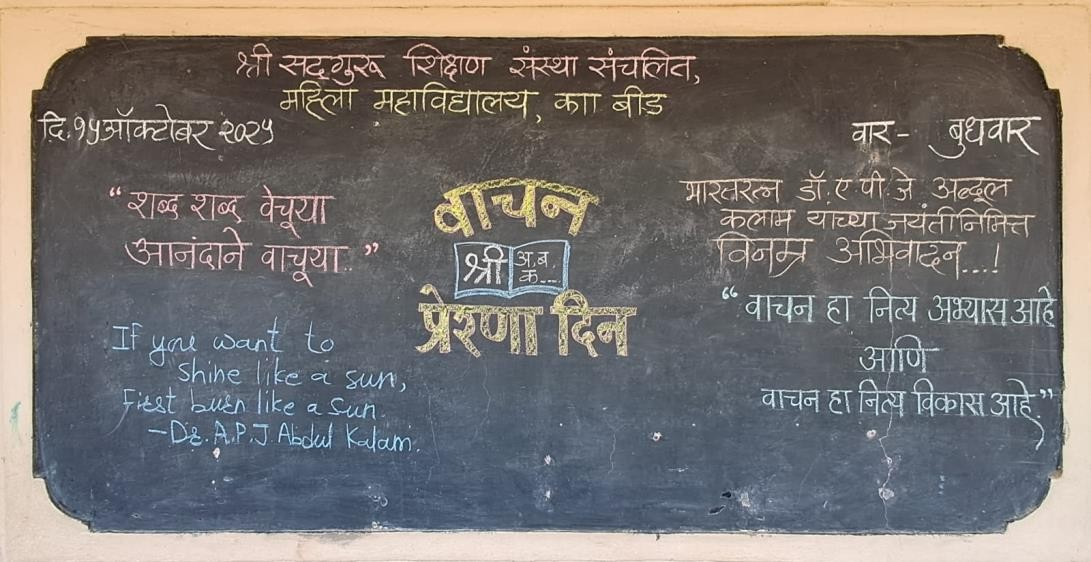 श्री सद्‌गुरू शिक्षण संस्था संचलित,
महिला महाविद्यालय, काा बीड
दि.१५ऑक्टोबर २०२५
वार - बुधवार
“शब्द शब्द वेचूया
आनंदाने वाचूया..”
वाचन
श्री
अ.ब.
क...
प्रेरणा दिन
If you want to
Shine like a sun,
First burn like a sun.
-Dr. A.P.J Abdul Kalam.
भारतरत्न डॉ. ए पी जे अब्दूल
कलाम याच्या जयंतीनिमित्त
विनम्र अभिवादन...!
“वाचन हा नित्य अभ्यास आहे
आणि
वाचन हा नित्य विकास आहे.”